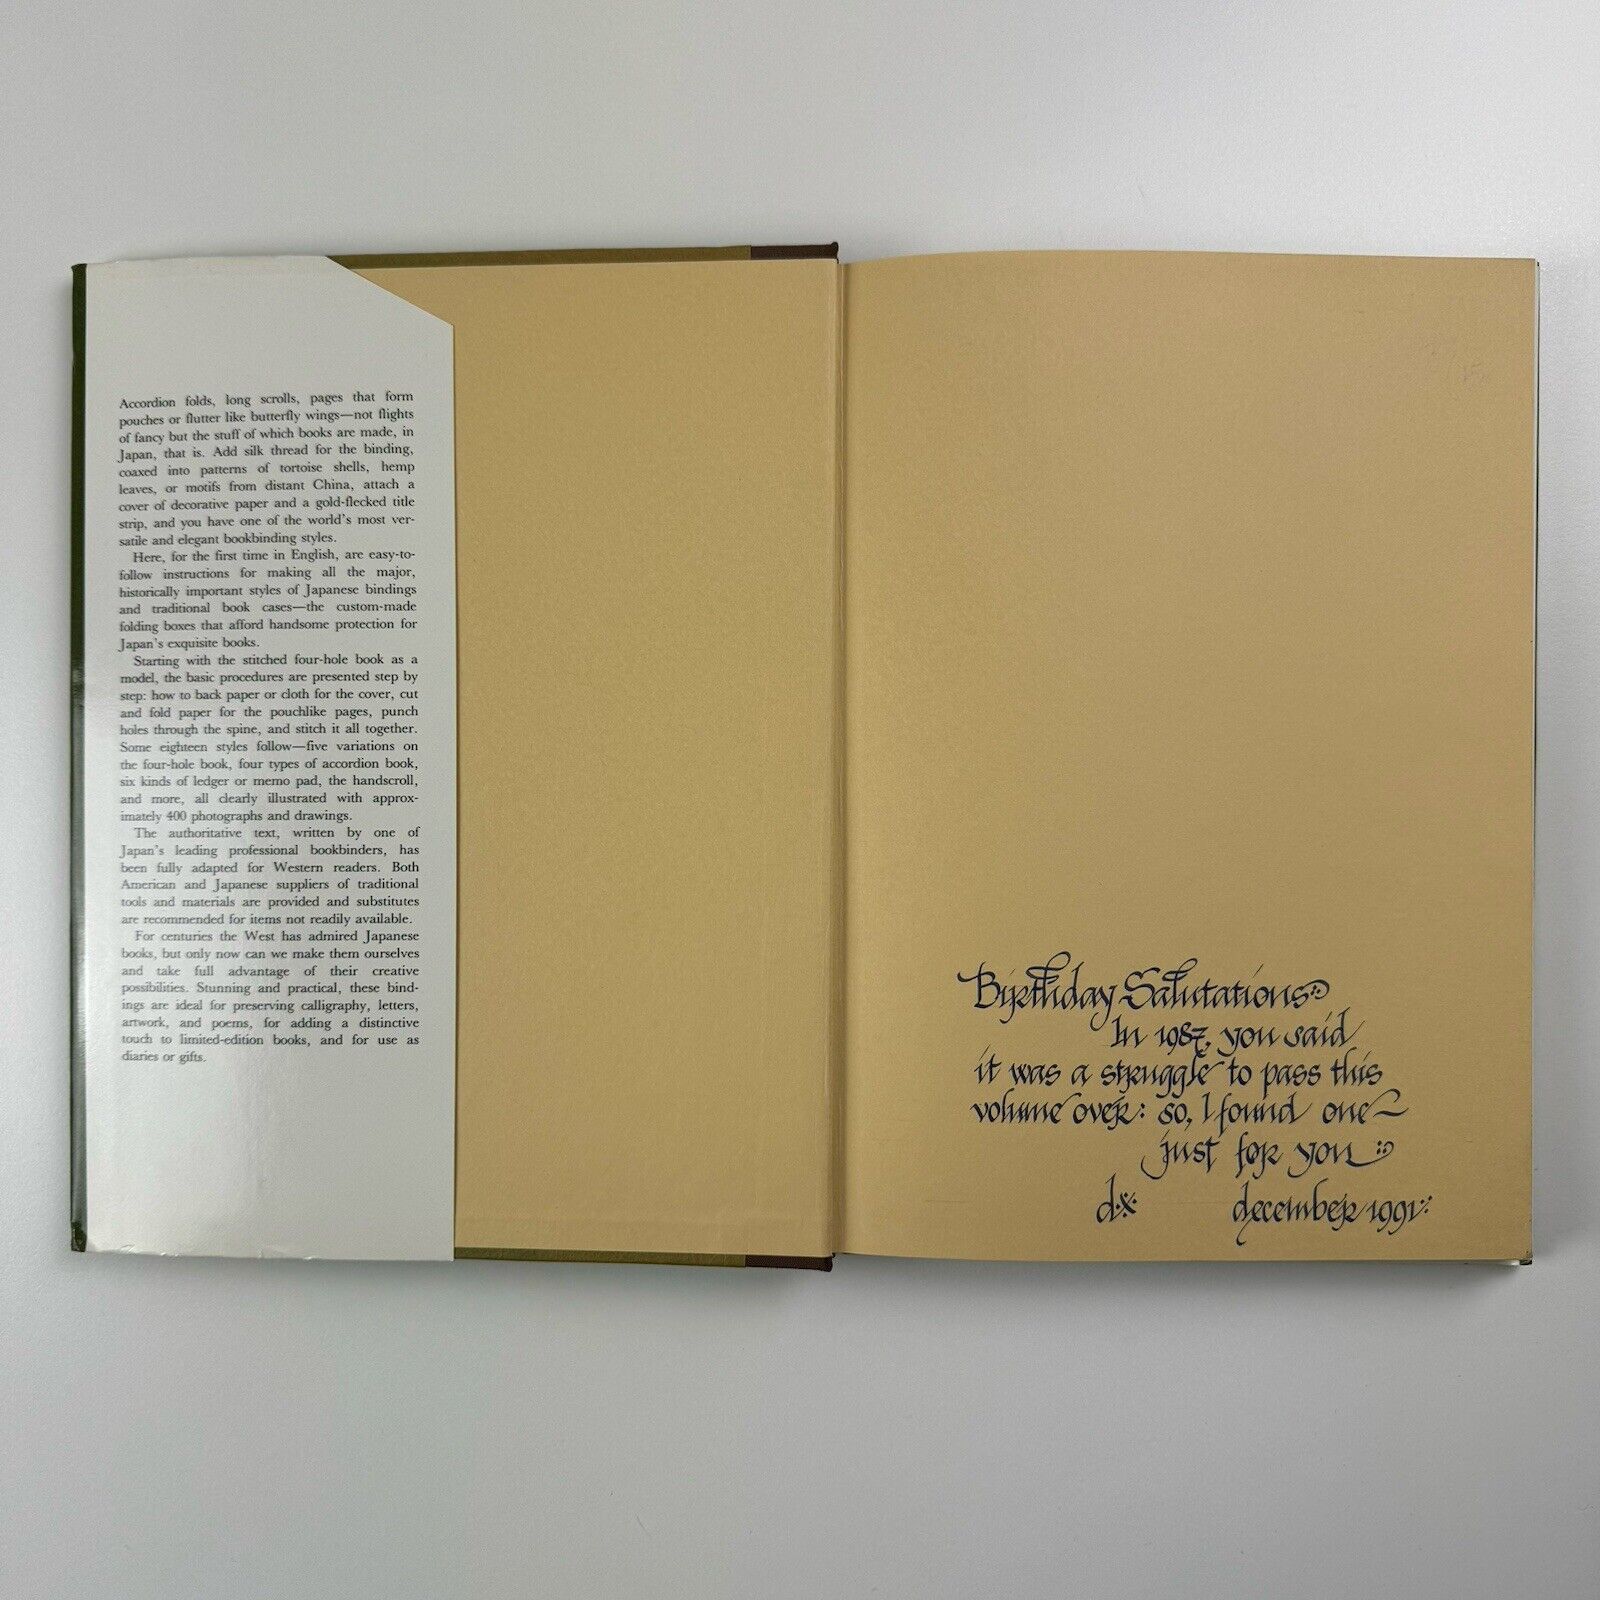 Accordion folds, long scrolls, pages that form
pouches or flutter like butterfly wings—not flights
of fancy but the stuff of which books are made, in
Japan, that is. Add silk thread for the binding,
coaxed into patterns of tortoise shells, hemp
leaves, or motifs from distant China, attach a
cover of decorative paper and a gold-flecked title
strip, and you have one of the world's most ver-
satile and elegant bookbinding styles.
Here, for the first time in English, are easy-to-
follow instructions for making all the major,
historically important styles of Japanese bindings
and traditional book cases—the custom-made
folding boxes that afford handsome protection for
Japan's exquisite books.
Starting with the stitched four-hole book as a
model, the basic procedures are presented step by
step: how to back paper or cloth for the cover, cut
and fold paper for the pouchlike pages, punch
holes through the spine, and stitch it all together.
Some eighteen styles follow—five variations on
the four-hole book, four types of accordion book,
six kinds of ledger or memo pad, the handscroll,
and more, all clearly illustrated with approx-
imately 400 photographs and drawings.
The authoritative text, written by one of
Japan's leading professional bookbinders, has
been fully adapted for Western readers. Both
American and Japanese suppliers of traditional
tools and materials are provided and substitutes
are recommended for items not readily available.
For centuries the West has admired Japanese
books, but only now can we make them ourselves
and take full advantage of their creative
possibilities. Stunning and practical, these bind-
ings are ideal for preserving calligraphy, letters,
artwork, and poems, for adding a distinctive
touch to limited-edition books, and for use as
diaries or gifts.
Birthday Salutations
In 1987, you said
it was a struggle to pass this
volume over: so, I found one
just for you
december 1991